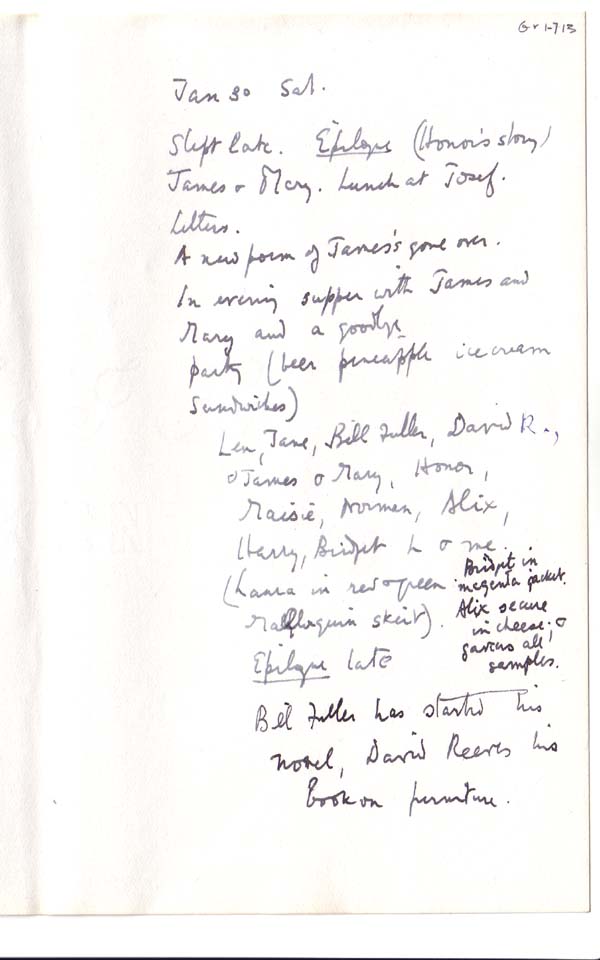 Gr 1-713
Jan 30 Sat.
Slept late. Epilogue (Honor's story)
James & Mary. Lunch at Josef.
Letters.
A new poem of James's gone over.
In evening supper with James and
Mary and a goodbye
party (beer pineapple ice cream
sandwiches)
Len, Jane, Bill Fuller, David R.,
& James & Mary, Honor,
Maisie, Norman, Alix,
Harry, Bridget L & me.
(Laura in red & green
skirt).
Bridget in
magenta jacket.
Alix secure
in cheese &
all
samples.
Epilogue late
Bill Fuller has started his
novel, David Reeves his
book on furniture.